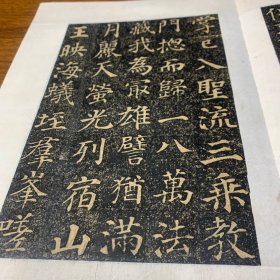 學已入聖流三乘教
門揔而歸一八萬法
藏我為冣雄譬猶滿
月麗天螢光列宿山
王映海蟻垤羣峯嗟